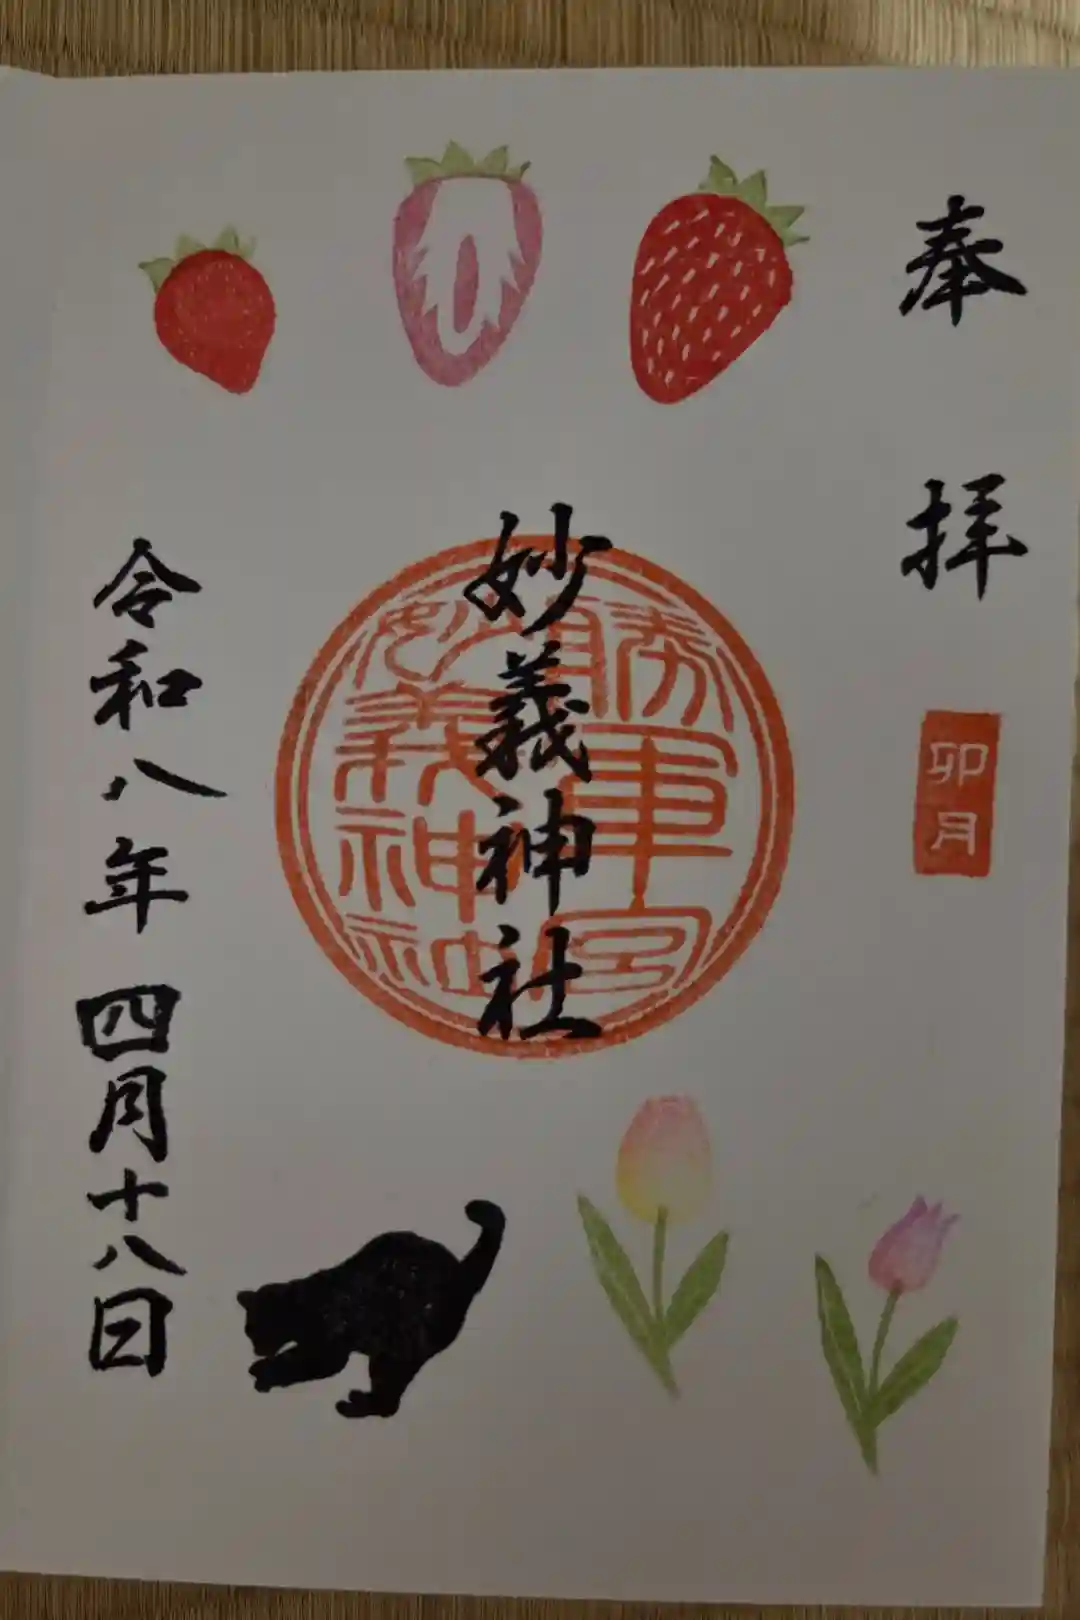 奉拝
卯月
妙義神社
勝軍宮
妙義神社
令和八年四月十八日